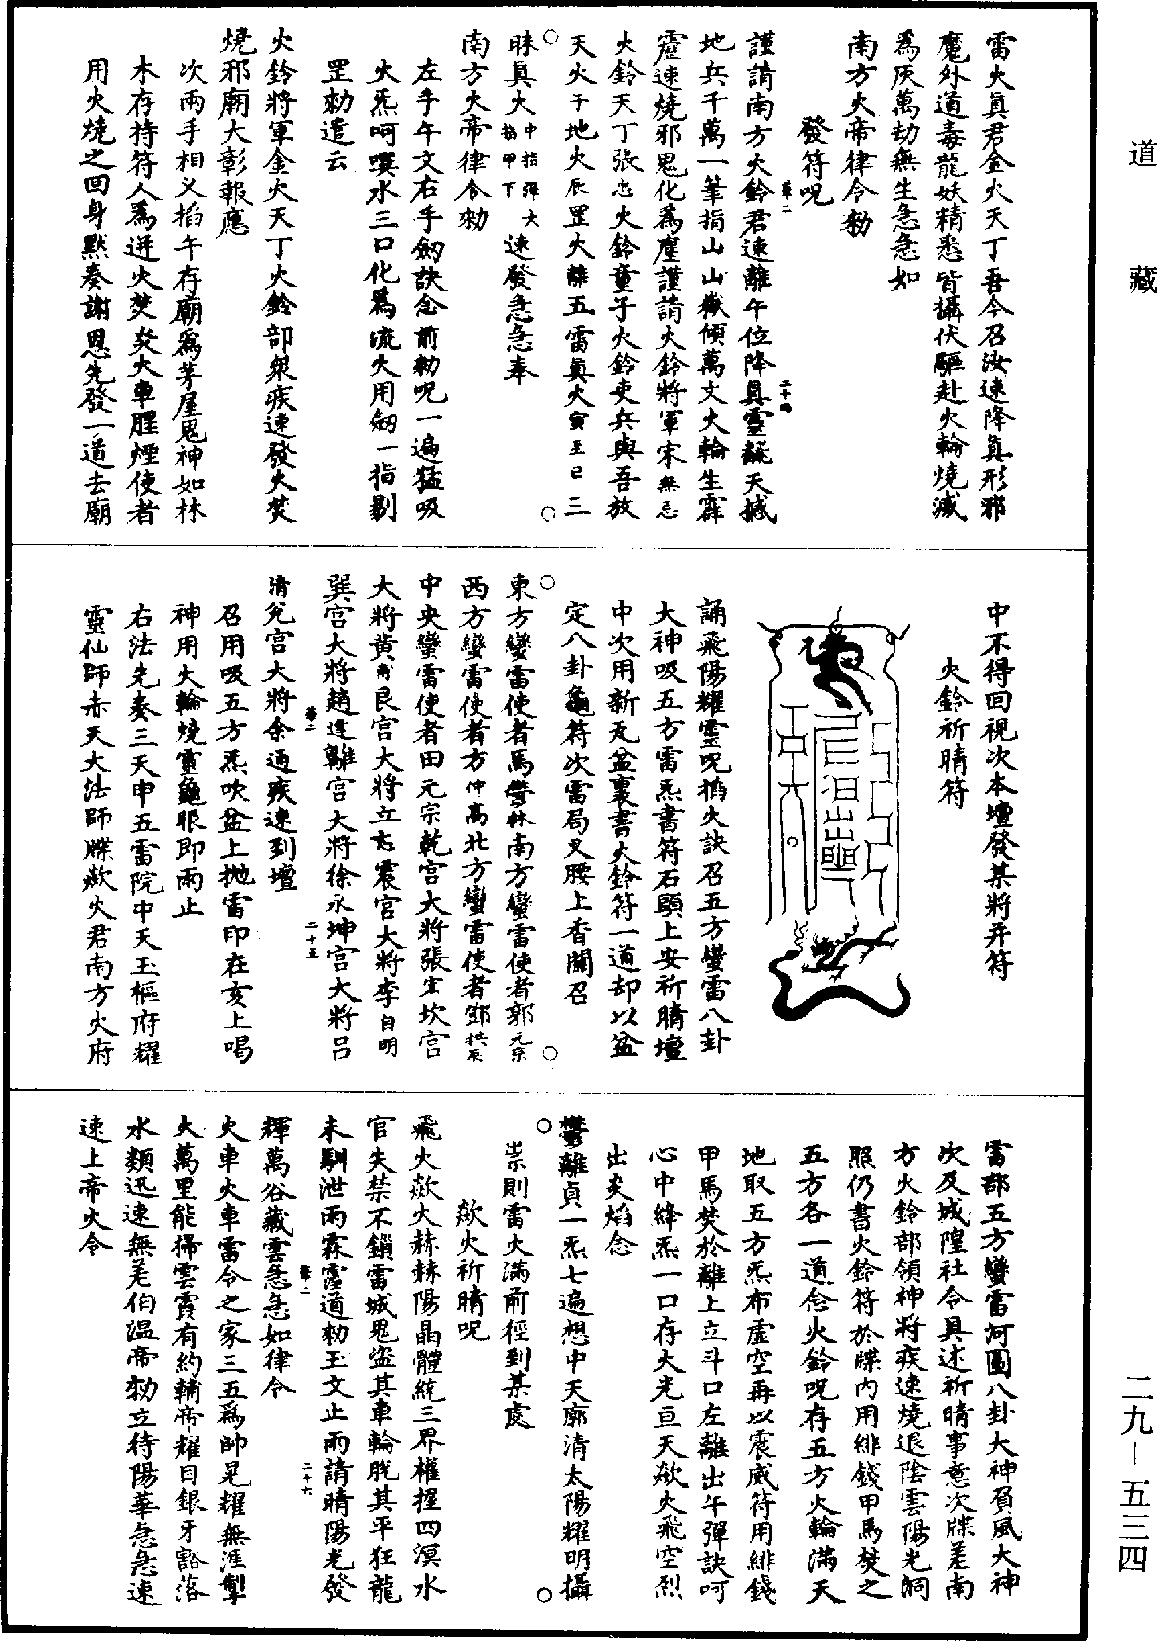 道藏
雷火眞君金火天丁吾今召汝速降眞形邪
魔外道毒龍妖精悉皆攝伏驅赴火輪燒滅
爲灰萬劫無生急急如
南方火帝律令勑
發符呪
謹請南方火鈴君速離午位降眞靈飜天撼
地兵千萬一筆指山山嶽傾萬丈火輪生霹
靂速燒邪鬼化爲塵謹請火鈴將軍宋無忌
火鈴天丁張忠火鈴童子火鈴吏兵與吾放
天火子地火辰罡火離五雷眞火寅至巳三
昧眞火中指彈大指甲下速發急急奉
南方火帝律令勑
左手午文右手劒訣念前勑呪一遍猛吸
火炁呵噀水三口化爲流火用劒一指剔
罡勑遣云
火鈴將軍金火天丁火鈴部衆疾速發火焚
燒邪廟大彰報應
次兩手相叉掐午存廟爲茅屋鬼神如林
木存持符人爲迸火焚炎火車腥煙使者
用火燒之回身黙奏謝恩先發一道去廟
中不得回視次本壇發某將并符
火鈴祈晴符
誦飛陽耀靈呪掐火訣召五方蠻雷八卦
大神吸五方雷炁書符石顋上安祈晴壇
中次用新瓦盆裏書火鈴符一道却以盆
定八卦龜符次雷局叉腰上香關召
東方蠻雷使者馬鬱林南方蠻雷使者郭元京
西方蠻雷使者方仲高北方蠻雷使者鄧拱辰
中央蠻雷使者田元宗乾宮大將張宏坎宮
大將黃靑艮宮大將立㐫震宮大將李自明
巽宮大將趙進離宮大將徐永坤宮大將呂
清兊宮大將余通疾速到壇
召用吸五方炁吹盆上抛雷印在亥上喝
神用火輪燒靈龜眼即雨止
右法先奏三天申五雷院中天玉樞府耀
靈仙師赤天大法師牒歘火君南方火府
雷部五方蠻雷河圖八卦大神負風大神
次及城隍社令具述祈晴事意次牒差南
方火鈴部領神將疾速燒退陰雲陽光炯
照仍書火鈴符於牒内用緋錢甲馬焚之
五方各一道念火鈴呪存五方火輪滿天
地取五方炁布虛空再以震威符用緋錢
甲馬焚於離上立斗口左離出午彈訣呵
心中絳炁一口存大光亘天歘火飛空烈
出炎焰念
鬱離貞一炁七遍想中天廓清太陽耀明攝
祟則雷火滿前徑到某處
歘火祈晴呪
飛火歘火赫赫陽晶體統三界權握四溟水
官失禁不鎖雷城鬼盜其車輪脫其平狂龍
未馴泄雨霖霪道勑玉文止雨請晴陽光發
輝萬谷藏雲急急如律令
火車火車雷令之家三五爲帥晃耀無涯掣
火萬里能掃雲霞有約輔帝耀目銀牙豁落
水類迅速無差伯温帝勑立待陽華急急速
速上帝火令
二九－五三四